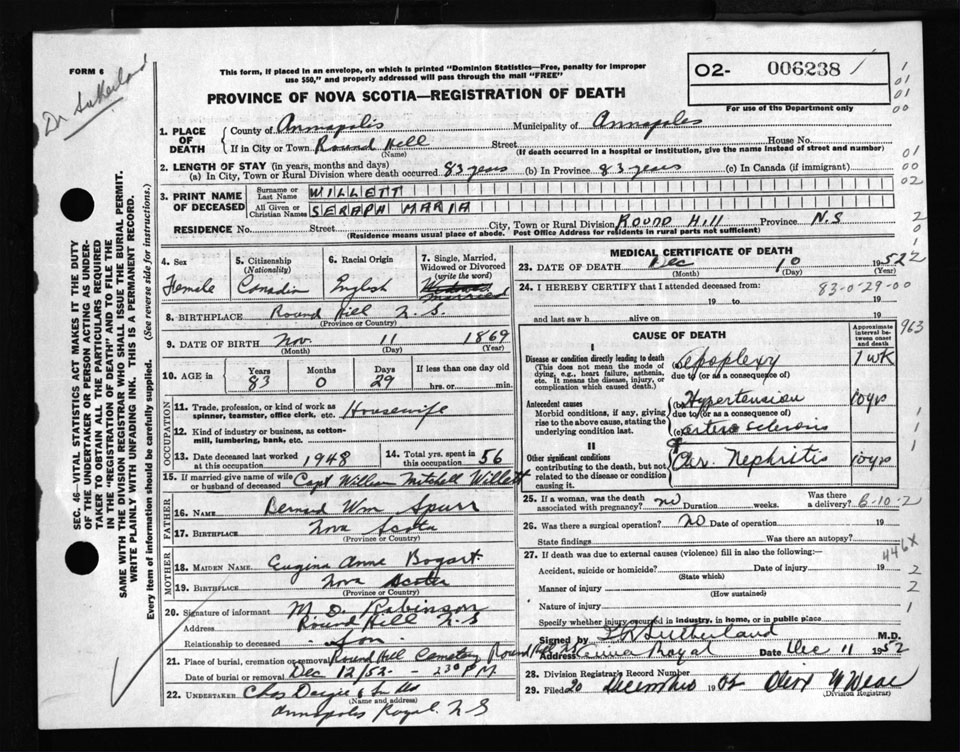 FORM 6
Dr Sutherland
This form, if placed in an envelope, on which is printed "Dominion Statistics—Free, penalty for improper
use $50," and properly addressed will pass through the mail "FREE"
PROVINCE OF NOVA SCOTIA—REGISTRATION OF DEATH
O2- 006238
For use of the Department only
SEC. 46—VITAL STATISTICS ACT MAKES IT THE DUTY
OF THE UNDERTAKER OR PERSON ACTING AS UNDER-
TAKER TO OBTAIN ALL THE PARTICULARS REQUIRED
IN THE "REGISTRATION OF DEATH" AND TO FILE THE
SAME WITH THE DIVISION REGISTRAR WHO SHALL ISSUE THE BURIAL PERMIT.
WRITE PLAINLY WITH UNFADING INK. THIS IS A PERMANENT RECORD.
Every item of information should be carefully supplied. (See reverse side for instructions.)
1. PLACE OF DEATH County of Annapolis Municipality of Annapolis
If in City or Town Round Hill Street House No.
(Name) (If death occurred in a hospital or institution, give the name instead of street and number)
2. LENGTH OF STAY (in years, months and days)
(a) In City, Town or Rural Division where death occurred 83 years (b) In Province 83 years (c) In Canada (if immigrant)
3. PRINT NAME OF DECEASED Surname or Last Name WILLETT
All Given or Christian Names SERAPH MARIA
RESIDENCE No. Street City, Town or Rural Division ROUND HILL Province N.S
(Residence means usual place of abode. Post Office Address for residents in rural parts not sufficient)
4. Sex Female
5. Citizenship (Nationality) Canadin
6. Racial Origin English
7. Single, Married, Widowed or Divorced (write the word) married
8. BIRTHPLACE Round Hill N.S.
(Province or Country)
9. DATE OF BIRTH Nov. 11 1869
(Month) (Day) (Year)
10. AGE in Years 83 Months 0 Days 29 If less than one day hrs. or min.
OCCUPATION
11. Trade, profession, or kind of work as spinner, teamster, office clerk, etc. Housewife
12. Kind of industry or business, as cotton-mill, lumbering, bank, etc.
13. Date deceased last worked at this occupation 1948 14. Total yrs. spent in this occupation 56
15. If married give name of wife or husband of deceased Capt William Mitchell Willett
FATHER
16. NAME Bernard Wm Spurr
17. BIRTHPLACE Nova Scotia
(Province or Country)
MOTHER
18. MAIDEN NAME Eugina Anna Bogart
19. BIRTHPLACE Nova Scotia
(Province or Country)
20. Signature of informant M. D. Robinson
Address Round Hill N S
Relationship to deceased Son
21. Place of burial, cremation or removal Round Hill Cemetery Round Hill
Date of burial or removal Dec 12/52 — 2 30 P.M.
22. UNDERTAKER Chas
(Name and address)
Annapolis Royal. N S
MEDICAL CERTIFICATE OF DEATH
23. DATE OF DEATH Dec 10 1952
(Month) (Day) (Year)
24. I HEREBY CERTIFY that I attended deceased from: 83-0-29-00
19 to 19
and last saw h alive on 19
CAUSE OF DEATH
Approximate interval between onset and death
I
Disease or condition directly leading to death Apoplexy 1 wk
(This does not mean the mode of dying, e.g., heart failure, asthenia, etc. It means the disease, injury, or complication which caused death.)
due to (or as a consequence of)
Antecedent causes (b) Hypertension 10 yrs
Morbid conditions, if any, giving rise to the above cause, stating the underlying condition last.
due to (or as a consequence of)
(c) arterio sclerosis
II
Other significant conditions Chr. Nephritis 10 yrs
contributing to the death, but not related to the disease or condition causing it.
25. If a woman, was the death associated with pregnancy? no Duration weeks. Was there a delivery? 6-10-2
26. Was there a surgical operation? no Date of operation 19
State findings Was there an autopsy?
27. If death was due to external causes (violence) fill in also the following:— 446X
Accident, suicide or homicide? Date of injury 19
(State which)
Manner of injury
(How sustained)
Nature of injury
Specify whether injury occurred in industry, in home, or in public place
Signed by Sutherland M.D.
Address Anna Royal Date Dec 11 1952
28. Division Registrar's Record Number
29. Filed 20 December 19
(Division Registrar)
963